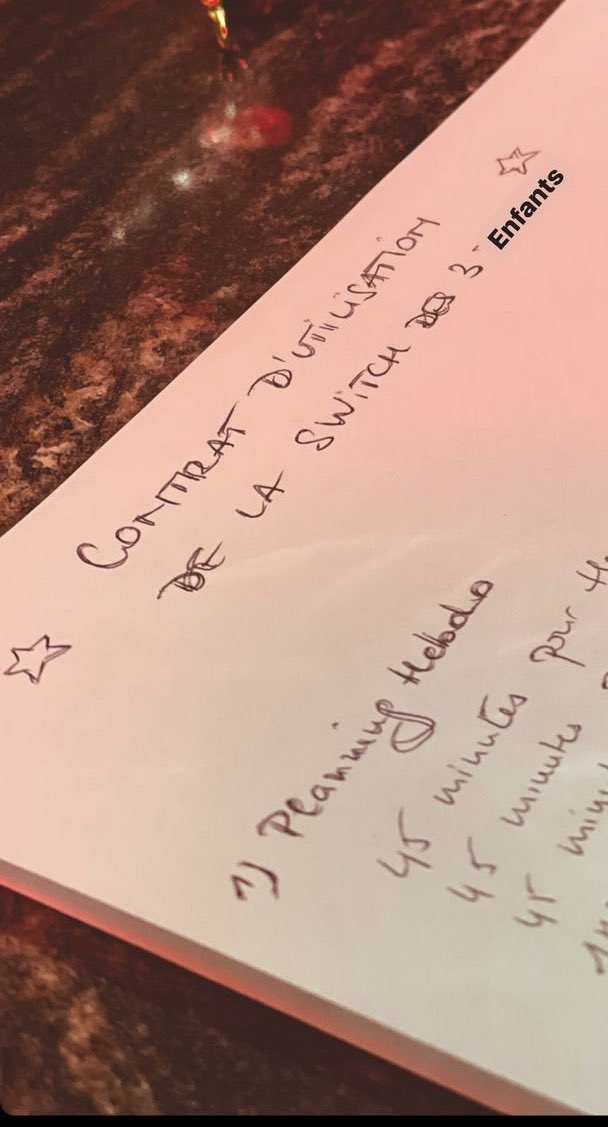 CONTRAT D'UTILISATION
DE LA SWITCH DES 3 Enfants
1) Planning Hebdo
45 minutes pour
45 minutes
45